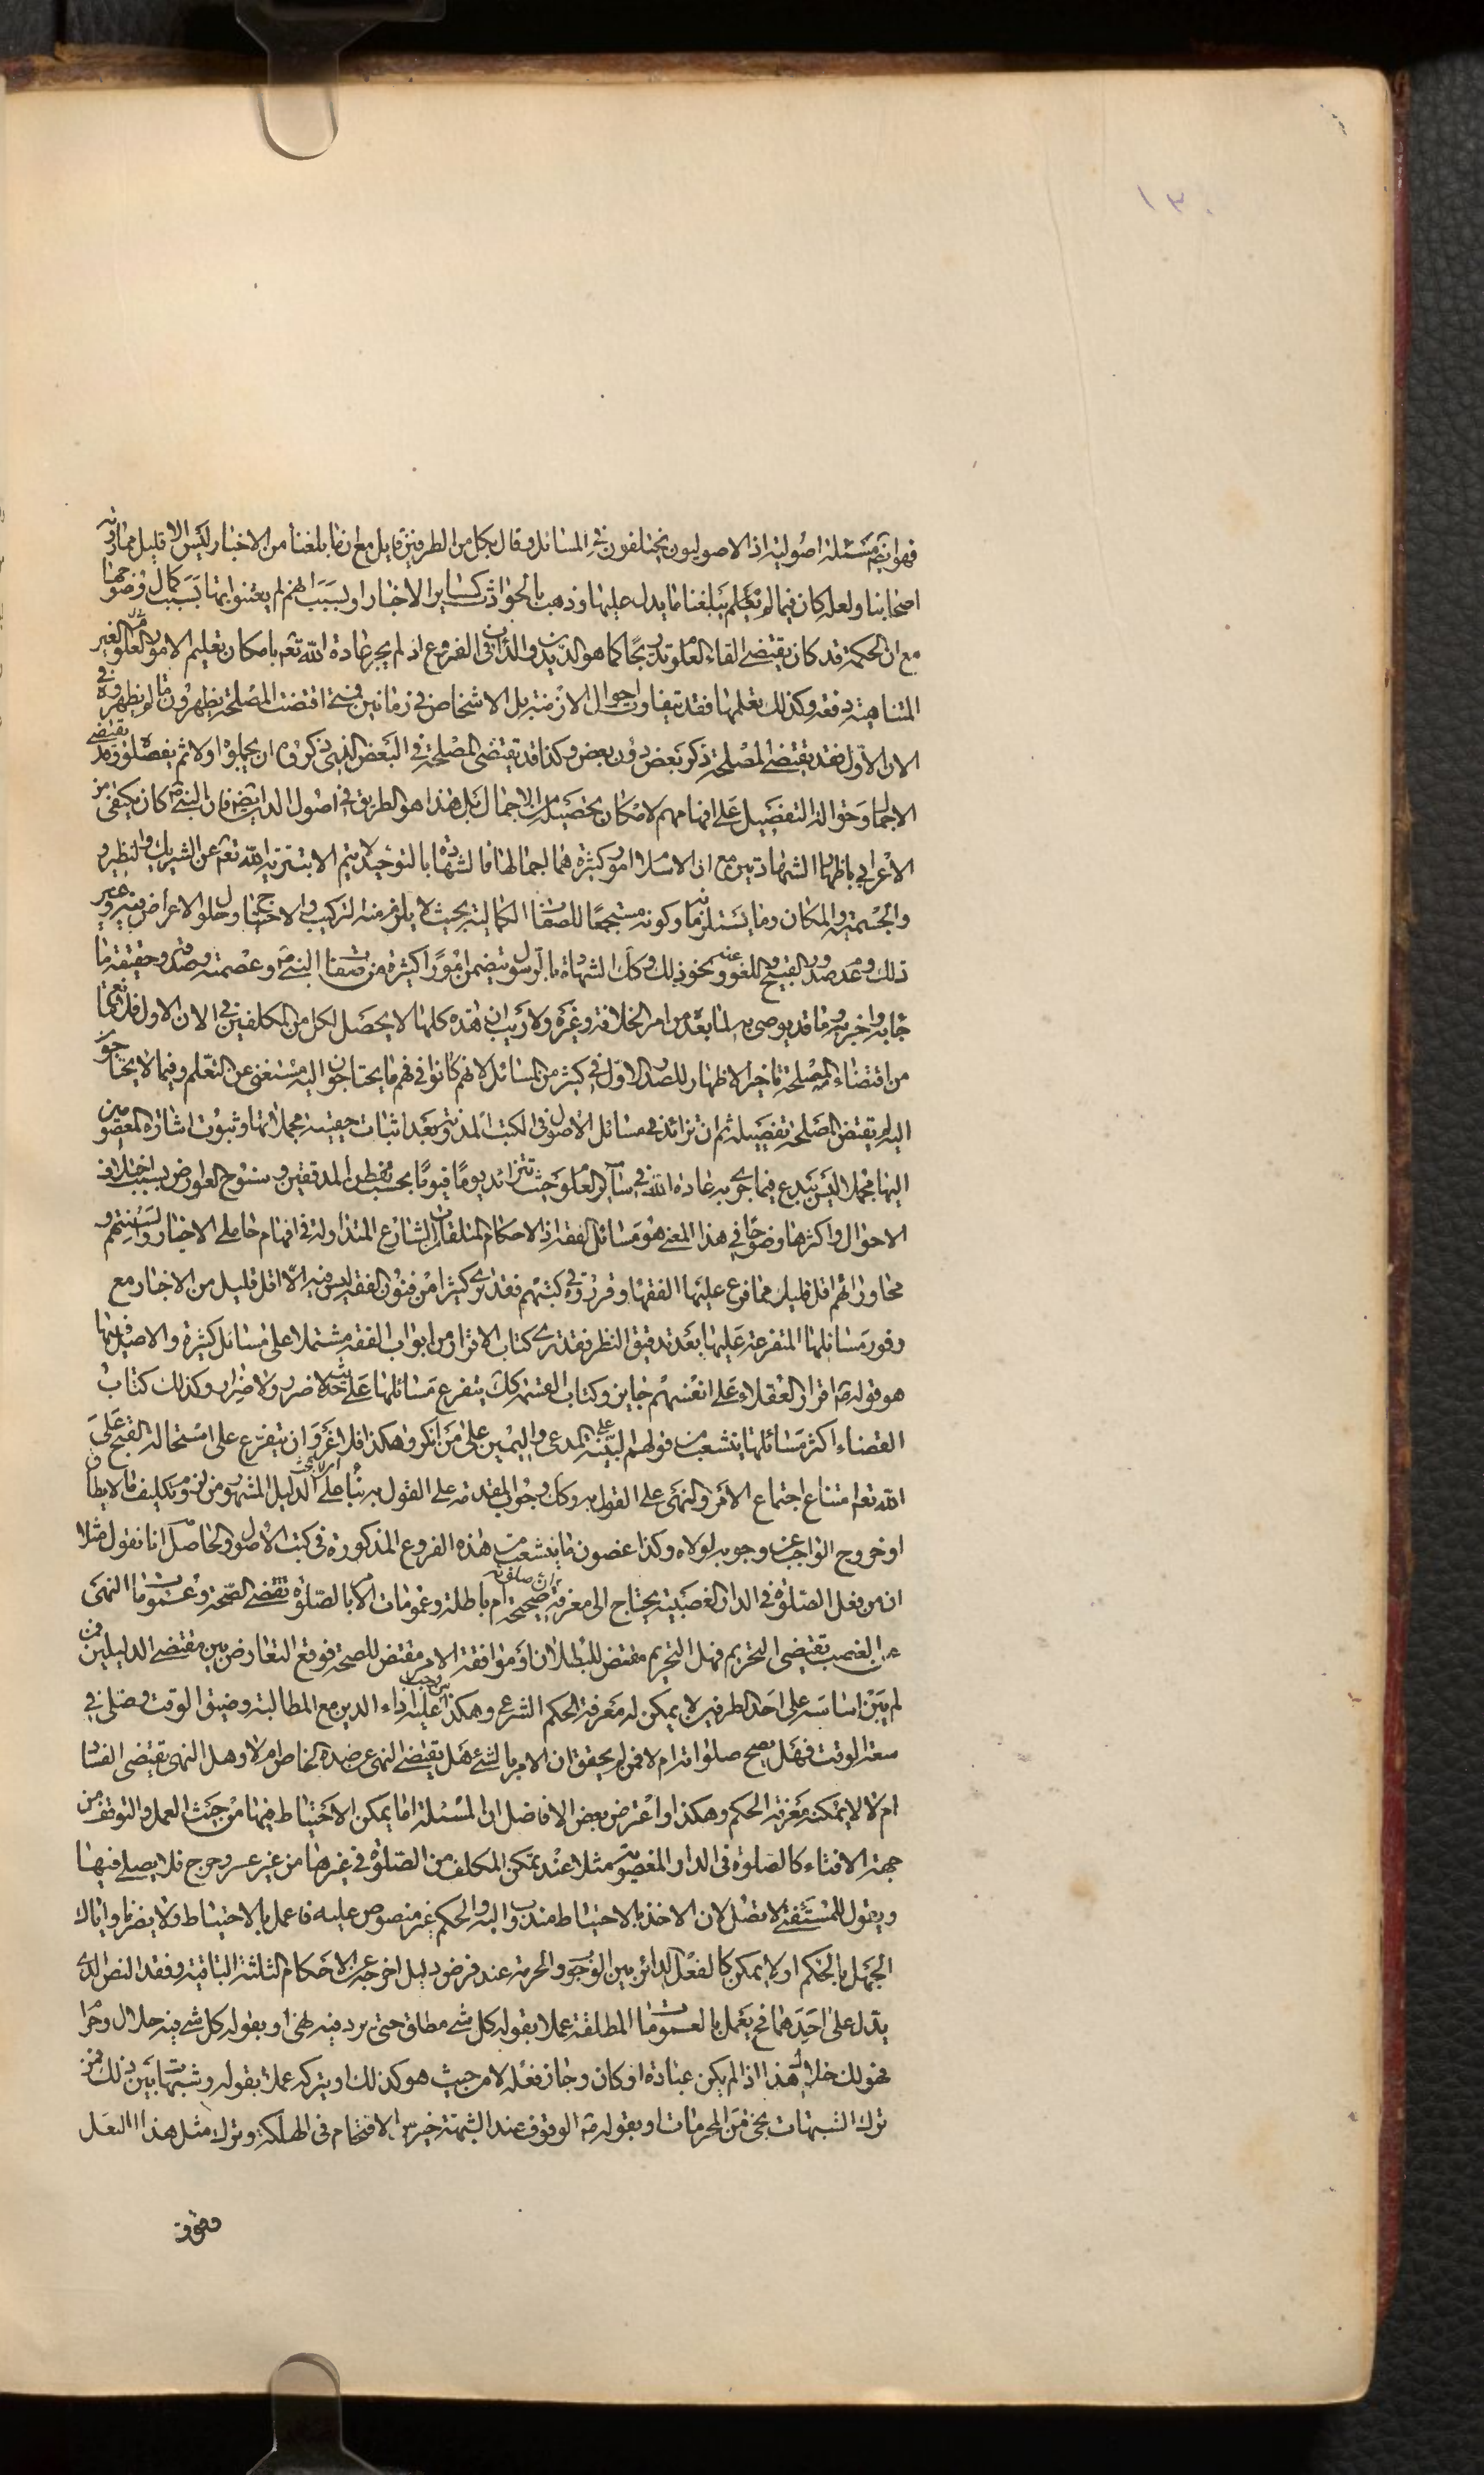 ١٣٠
فهو ايضا مسئلة اصولية اذ الاصوليون يختلفون في المسائل وقال بكل من الطرفين قايل مع ان ما بلغنا من الاخبار ليس الا قليل مما رونه
اصحابنا ولعله كان فيما لم يبلغنا ما يدل عليها وذهب بالحوادث كساير الاخبار او لسبب انهم لم يعتنوا بها بسبب كمال وضوحها
مع ان الحكمة قد كان يقتضي القاء العلوم تدريجا كما هو الديدن والداب في الفروع اذ لم يجر عادة الله تعم بامكان تعليم الامور والعلوم الغير
المتناهية دفعة وكذلك تعلمها فقد يتفاوت احوال الازمنة بل الاشخاص في زمانين فمتى اقتضت المصلحة يظهرون ما لم يظهروه في
الان الاول فقد يقتضي المصلحة ذكر بعض دون بعض وكذا قد تقتضي المصلحة في البعض الذي ذكروه ان يجملوه اولا ثم يفصلوه وقد تقتضي
الاجمال وحوالة التفصيل على افهامهم لامكان تحصيله من الاجمال بل هذا هو الطريق في اصول الدين ايضا فان النبي ص كان يكتفي من
الاعرابي باظهار الشهادتين مع ان الاسلام امور كثيرة هما اجمالها فالشهادة بالتوحيد لا يتم الا بتنزيه الله تعم عن الشريك والنظير و
والجسمية والمكان وما يستلزمها وكونه مستجمعا للصفات الكمالية بحيث لا يلزم منه التركيب والاحتياج وحلول الاعراض فيه وغير
ذلك وعدم صدور القبيح واللغو عنه ونحو ذلك وكك الشهادة بالرسول يتضمن امورا كثيرة من صفات النبي ص وعصمته وصدقه وحقيقة ما
جا به واخر به وما قد يوصي به لما بعده من امر الخلافة وغيره ولا ريب ان هذه كلها لا يحصل لكل من المكلفين في الان الاول فلا مانع
من اقتضاء المصلحة تاخير الاظهار للصدر الاول في كثير من المسائل لانهم كانوا في فهم ما يحتاجون اليه مستغني عن التعلم وفيما لا يحتاجون
اليه لم يقتض المصلحة تفصيله ثم ان تزائد في مسائل الاصول في الكتب المدونة بعد اثبات حقيقة مجملاتها وثبوت اشارة المعصومين
اليها مجملا ليس ببدع فيما جرى به عادة الله في ساير العلوم حيث تتزائد يوما فيوما بحسب تفطن المدققين وسنوح العوارض بسبب اختلاف
الاحوال واكثرها وضوحا في هذا المعنى هو مسائل الفقه اذ الاحكام المتلقات من الشارع المتداولة في افهام حاملي الاخبار والسنتهم و
محاوراتهم اقل قليل مما فرع عليها الفقهاء وقرروه في كتبهم فقد ترى كثيرا من فنون الفقه ليس فيه الا اقل قليل من الاخبار مع
وفور مسائلها المتفرعة عليها بعد تدقيق النظر فقد ترى كتاب الاقرار من ابواب الفقه مشتملا على مسائل كثيرة والاصل فيها
هو قوله ص اقرار العقلاء على انفسهم جايز وكتاب العتق كك يتفرع مسائلها على حديث لا ضرر ولا ضرار وكذلك كتاب
القضاء اكثر مسائلها يتشعب من قولهم البينة على المدعي واليمين على من انكر وهكذا فلا غرو ان يتفرع على استحالة القبح على
الله تعم امتناع اجتماع الامر والنهي على القول به وكك وجوب المقدمة على القول به بناء على الدليل المشهور من لزوم تكليف ما لا يطاق
او خروج الواجب عن وجوبه لولاه وكذا غصون ما يتشعب من هذه الفروع المذكورة في كتب الاصول والحاصل انا نقول مثلا
ان من فعل الصلوة في الدار الغصبية يحتاج الى معرفة ان صلوته صحيحة ام باطلة وعمومات الامر بالصلوة تقتضي الصحة وعمومات النهي
عن الغصب تقتضي التحريم فهل التحريم مقتض للبطلان او موافقة الامر مقتض للصحة فوقع التعارض بين مقتضى الدليلين فمن
لم يبن اساسه على احد الطرفين لا يمكن له معرفة الحكم الشرعي وهكذا من وجب عليه اداء الدين مع المطالبة وضيق الوقت وصلى في
سعة الوقت فهل يصح صلواته ام لا فمن لم يحقق ان الامر بالشئ هل يقتضي النهي عن ضده الخاص ام لا وهل النهي يقتضي الفساد
ام لا لا يمكنه معرفة الحكم وهكذا واعترض بعض الافاضل ان المسئلة اما يمكن الاحتياط فيها من حيث العمل والتوقف من
جهة الافتاء كالصلوة في الدار المغصوبة مثلا عند تمكن المكلف من الصلوة في غيرها من غير عسر وحرج فلا يصلي فيها
ويقول للمستفتي لا تصل لان الاخذ بالاحتياط مندوب اليه والحكم غير منصوص عليه فاعمل بالاحتياط ولا يضرنا واياك
الجهل بالحكم او لا يمكن كالفعل الدائر بين الوجوب والحرمة عند فرض دليل اخرجه عن الاحكام الثلثة الباقية وفقد النص الذي
يدل على احدهما فح يعمل بالعمومات المطلقة عملا بقوله كل شئ مطلق حتى يرد فيه نهي او بقوله كل شئ فيه حلال وحرام
فهو لك حلال هذا اذا لم يكن عبادة او كان وجاز فعله لا من حيث هو كذلك او يتركه عملا بقوله وشبهات بين ذلك فمن
ترك الشبهات نجى من المحرمات او بقوله ع الوقوف عند الشبهة خير من الاقتحام في الهلكة وترك مثل هذا الفعل